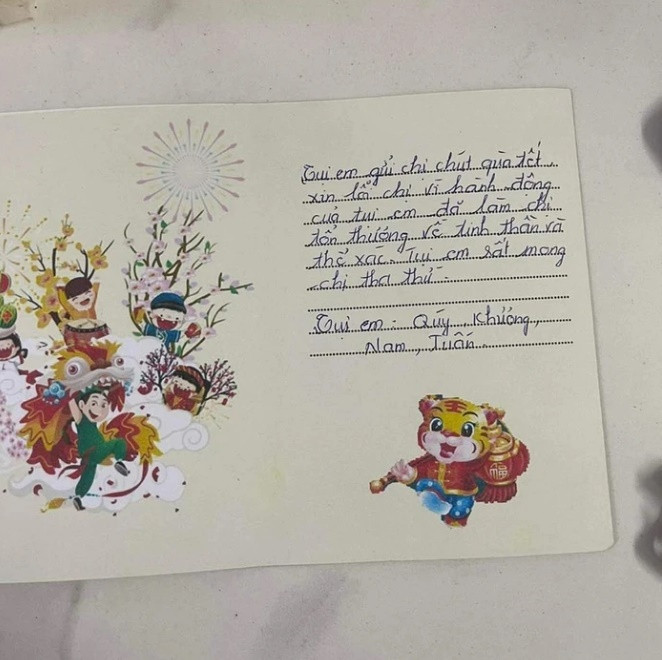 Tụi em gửi chị chút quà tết
xin lỗi chị vì hành động
của tụi em đã làm chị
tổn thương về tinh thần và
thể xác. Tụi em rất mong
chị tha thứ
Tụi em: Quý, Khương,
Nam, Tuấn.
福